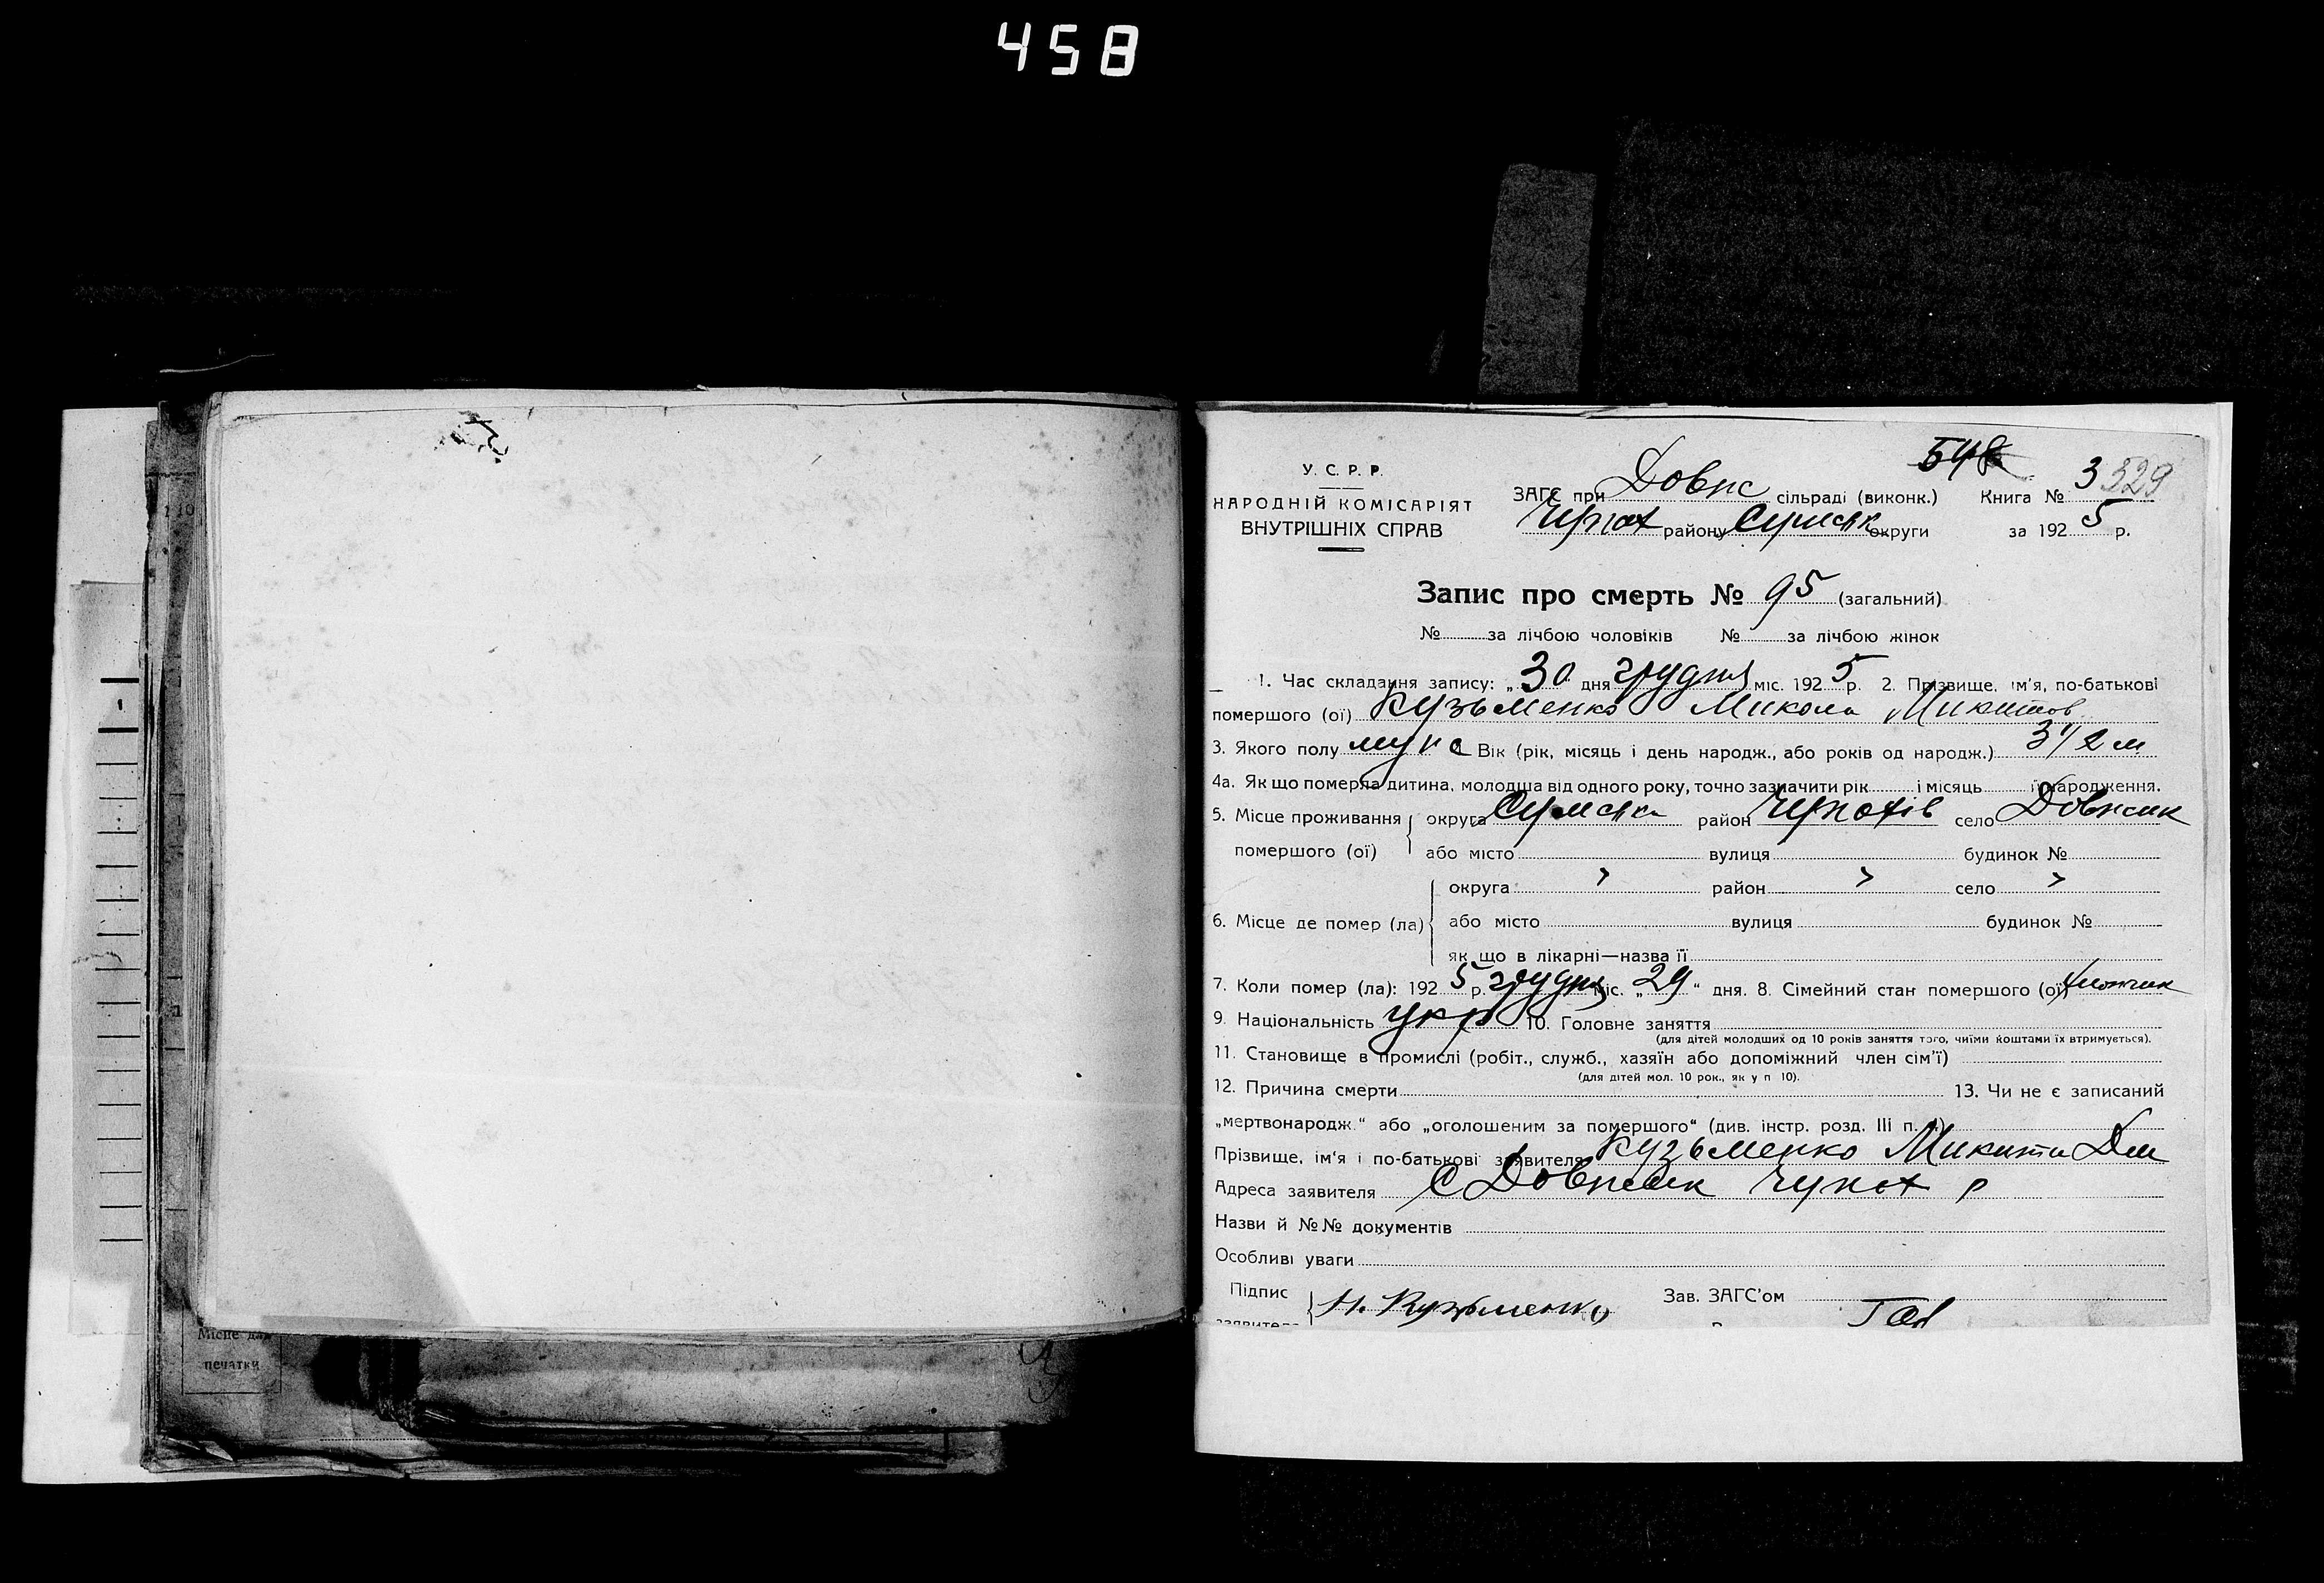 458
548
У. С. Р. Р.
НАРОДНІЙ КОМІСАРІЯТ
ВНУТРІШНІХ СПРАВ
ЗАГС при Довжс сільраді (виконк.) Книга № 3 529
район у Сумськ округи за 1925 р.
Запис про смерть № 95 (загальний)
№ за лічбою чоловіків № за лічбою жінок
1. Час складання запису: „30" дня грудня міс. 1925 р. 2. Прізвище, ім'я, по-батькові
помершого (ої) Кузьменко Микола Микитов
3. Якого полу муж Вік (рік, місяць і день народж., або років од народж.) 3 1/2 м
4а. Як що померла дитина, молодша від одного року, точно зазначити рік і місяць її народження.
5. Місце проживання округа Сумська район село Довжик
помершого (ої) або місто вулиця будинок №
округа " район " село "
6. Місце де помер (ла) або місто вулиця будинок №
як що в лікарні—назва її
7. Коли помер (ла): 1925 р. грудня міс. „29" дня. 8. Сімейний стан помершого (ої) хлопчик
9. Національність укр 10. Головне заняття
(для дітей молодших од 10 років заняття того, чиїми коштами їх втримується).
11. Становище в промислі (робіт., служб., хазяїн або допоміжний член сім'ї)
(для дітей мол. 10 рок., як у п 10).
12. Причина смерти 13. Чи не є записаний
„мертвонародж." або „оголошеним за помершого" (див. інстр. розд. III п. )
Прізвище, ім'я і по-батькові заявителя Кузьменко Микита Дм
Адреса заявителя С Довжик р
Назви й №№ документів
Особливі уваги
Підпис Зав. ЗАГС'ом
заявителя Н. Кузьменко
Місце для
печатки